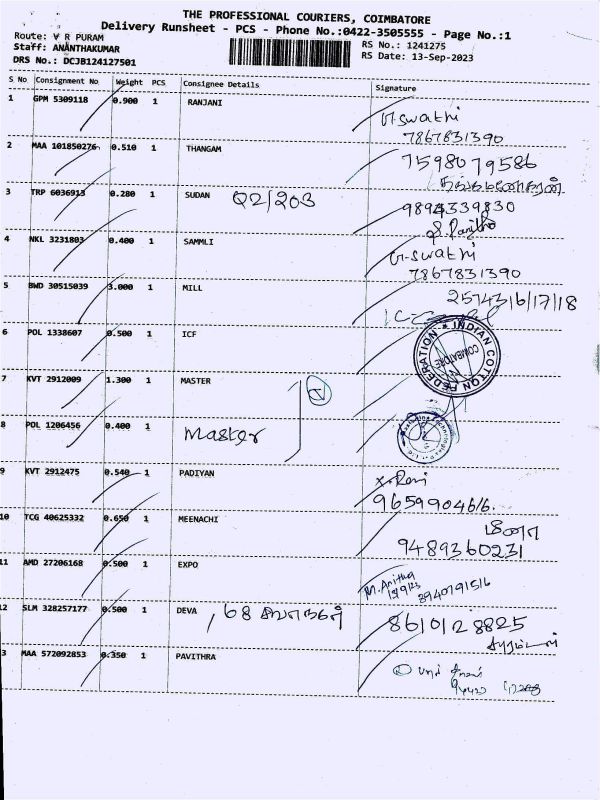 THE PROFESSIONAL COURIERS, COIMBATORE
Delivery Runsheet - PCS - Phone No.:0422-3505555 - Page No.:1
Route: V R PURAM
RS No.: 1241275
Staff: ANANTHAKUMAR
RS Date: 13-Sep-2023
DRS No.: DCJB124127501
S No Consignment No Weight PCS Consignee Details Signature
1 GPM 5309118 0.900 1 RANJANI
swathi
7867831390
2 MAA 101850276 0.510 1 THANGAM
7598079586
3 TRP 6036913 0.280 1 SUDAN Q2/203
9894339830
4 NKL 3231803 0.400 1 SAMMLI
swathi
7867831390
5 BWD 30515039 3.000 1 MILL
2574316/17/18
6 POL 1338607 0.500 1 ICF
INDIAN COTTON FEDERATION
COIMBATORE
7 KVT 2912009 1.300 1 MASTER
8 POL 1206456 0.400 1 Master
9 KVT 2912475 0.540 1 PADIYAN
9659904616.
10 TCG 40625332 0.650 1 MEENACHI
மீனா
9489360231
11 AMD 27206168 0.500 1 EXPO
M. Anitha
8940791516
12 SLM 328257177 0.500 1 DEVA , 68
8610128825
3 MAA 572092853 0.350 1 PAVITHRA